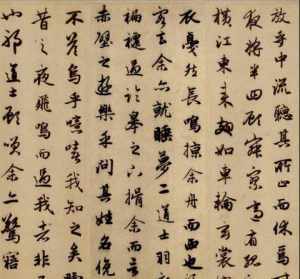 放乎中流聽其所止而休焉
夜將半四顧寂寥適有孤
橫江東來翅如車輪玄裳
衣戛然長鳴掠余舟而西也
客去余亦就睡夢二道士羽
蹁躚過臨皋之下揖余而言
赤壁之遊樂乎問其姓名俛
不答嗚呼噫嘻我知之矣
昔之夜飛鳴而過我者非
也耶道士顧笑余亦驚寤